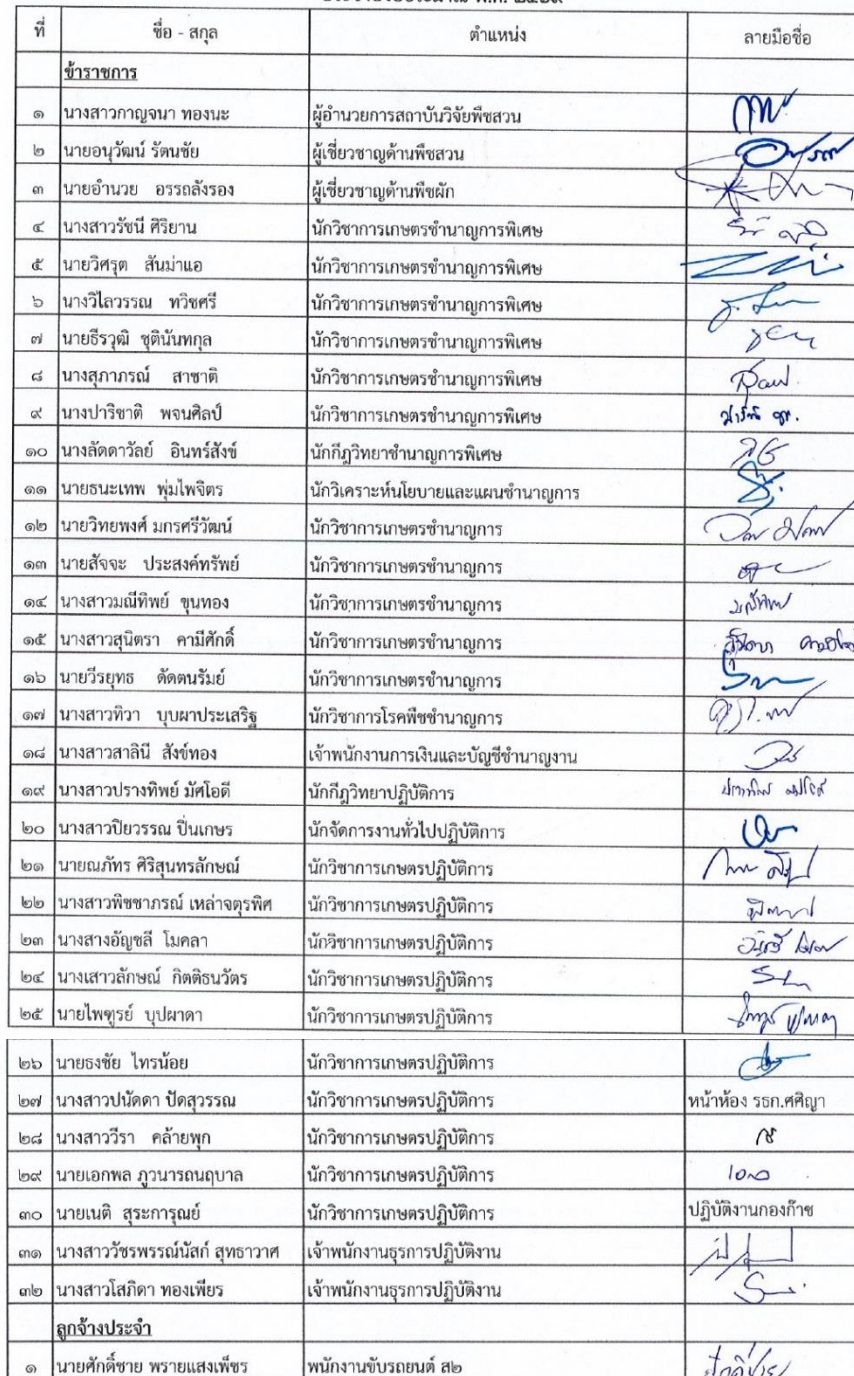 ที่ ชื่อ - สกุล ตำแหน่ง ลายมือชื่อ
ข้าราชการ
๑ นางสาวกาญจนา ทองนะ ผู้อำนวยการสถาบันวิจัยพืชสวน
๒ นายอนุวัฒน์ รัตนชัย ผู้เชี่ยวชาญด้านพืชสวน
๓ นายอำนวย อรรถลังรอง ผู้เชี่ยวชาญด้านพืชผัก
๔ นางสาวรัชนี ศิริยาน นักวิชาการเกษตรชำนาญการพิเศษ
๕ นายวิศรุต สันม่าแอ นักวิชาการเกษตรชำนาญการพิเศษ
๖ นางวิไลวรรณ ทวิชศรี นักวิชาการเกษตรชำนาญการพิเศษ
๗ นายธีรวุฒิ ชุตินันทกุล นักวิชาการเกษตรชำนาญการพิเศษ
๘ นางสุภาภรณ์ สาชาติ นักวิชาการเกษตรชำนาญการพิเศษ
๙ นางปาริชาติ พจนศิลป์ นักวิชาการเกษตรชำนาญการพิเศษ
๑๐ นางลัดดาวัลย์ อินทร์สังข์ นักกีฏวิทยาชำนาญการพิเศษ
๑๑ นายธนะเทพ พุ่มไพจิตร นักวิเคราะห์นโยบายและแผนชำนาญการ
๑๒ นายวิทยพงศ์ มกรศรีวัฒน์ นักวิชาการเกษตรชำนาญการ
๑๓ นายสัจจะ ประสงค์ทรัพย์ นักวิชาการเกษตรชำนาญการ
๑๔ นางสาวมณีทิพย์ ขุนทอง นักวิชาการเกษตรชำนาญการ
๑๕ นางสาวสุนิตรา คามีศักดิ์ นักวิชาการเกษตรชำนาญการ
๑๖ นายวีรยุทธ ดัดตนรัมย์ นักวิชาการเกษตรชำนาญการ
๑๗ นางสาวทิวา บุบผาประเสริฐ นักวิชาการโรคพืชชำนาญการ
๑๘ นางสาวสาลินี สังข์ทอง เจ้าพนักงานการเงินและบัญชีชำนาญงาน
๑๙ นางสาวปรางทิพย์ มัศโอดี นักกีฏวิทยาปฏิบัติการ
๒๐ นางสาวปิยวรรณ ปิ่นเกษร นักจัดการงานทั่วไปปฏิบัติการ
๒๑ นายณภัทร ศิริสุนทรลักษณ์ นักวิชาการเกษตรปฏิบัติการ
๒๒ นางสาวพิชชาภรณ์ เหล่าจตุรพิศ นักวิชาการเกษตรปฏิบัติการ
๒๓ นางสางอัญชลี โมคลา นักวิชาการเกษตรปฏิบัติการ
๒๔ นางเสาวลักษณ์ กิตติธนวัตร นักวิชาการเกษตรปฏิบัติการ
๒๕ นายไพฑูรย์ บุปผาดา นักวิชาการเกษตรปฏิบัติการ
๒๖ นายธงชัย ไทรน้อย นักวิชาการเกษตรปฏิบัติการ
๒๗ นางสาวปนัดดา ปัดสุวรรณ นักวิชาการเกษตรปฏิบัติการ หน้าห้อง รธก.ศศิญา
๒๘ นางสาววีรา คล้ายพุก นักวิชาการเกษตรปฏิบัติการ
๒๙ นายเอกพล ภูวนารถนฤบาล นักวิชาการเกษตรปฏิบัติการ
๓๐ นายเนติ สุระการุณย์ นักวิชาการเกษตรปฏิบัติการ ปฏิบัติงานกองก๊าช
๓๑ นางสาววัชรพรรณ์นัสก์ สุทธาวาศ เจ้าพนักงานธุรการปฏิบัติงาน
๓๒ นางสาวโสภิดา ทองเพียร เจ้าพนักงานธุรการปฏิบัติงาน
ลูกจ้างประจำ
๑ นายศักดิ์ชาย พรายแสงเพ็ชร พนักงานขับรถยนต์ ส๒